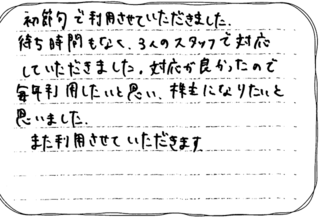 初節句で利用させていただきました.
待ち時間もなく、3人のスタッフで対応
していただきました。対応が良かったので
毎年利用したいと思い、株主になりたいと
思いました.
また利用させていただきます